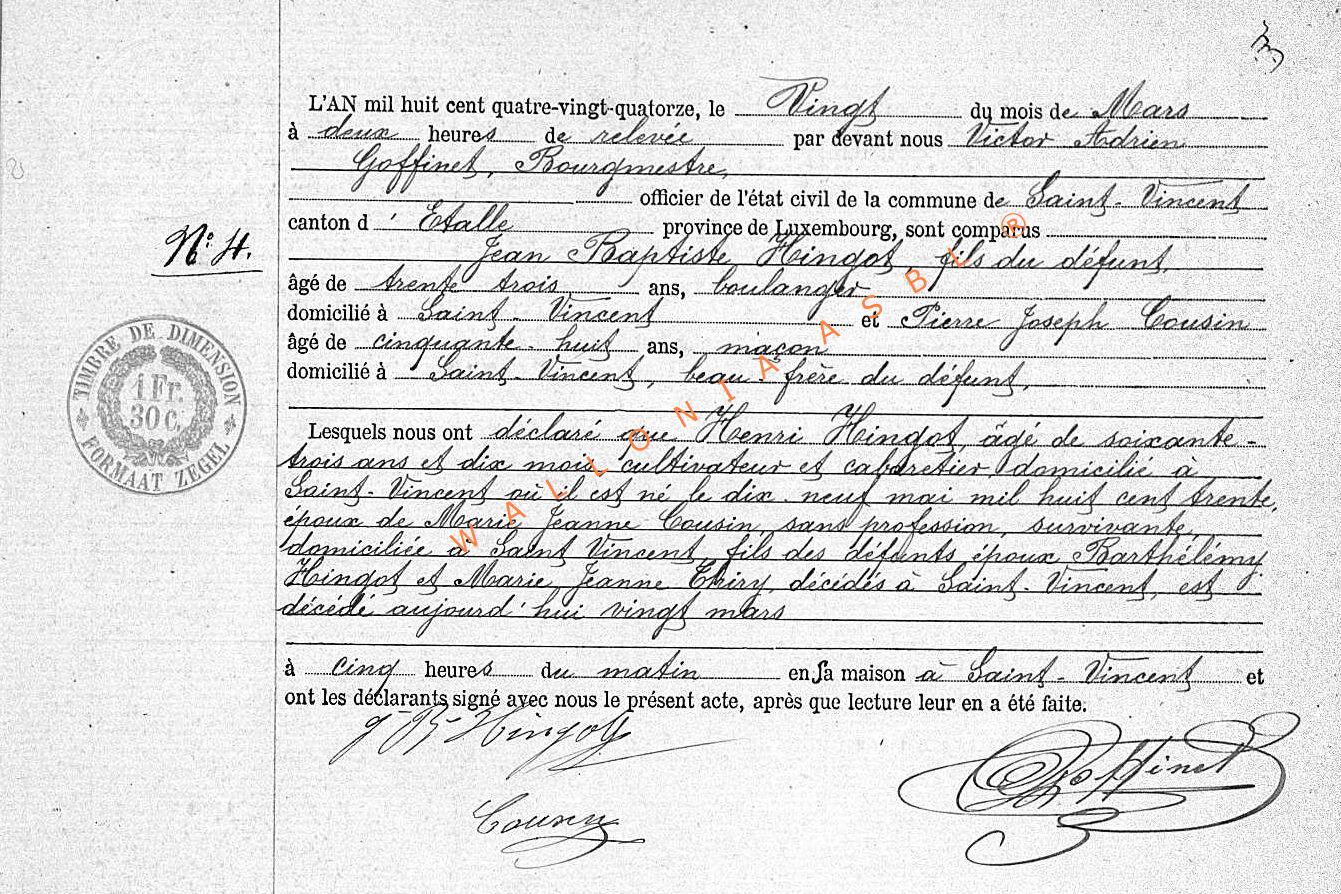 L'AN mil huit cent quatre-vingt-quatorze, le Vingt du mois de Mars
à deux heures de relevée par devant nous Victor Adrien
Goffinet, Bourgmestre,
officier de l'état civil de la commune de Saint-Vincent
canton d'Etalle province de Luxembourg, sont comparus
N° 4.
Jean Baptiste Hingot, fils du défunt,
âgé de trente trois ans, boulanger
domicilié à Saint-Vincent et Pierre Joseph Cousin
âgé de cinquante-huit ans, maçon
domicilié à Saint-Vincent, beau-frère du défunt,
TIMBRE DE DIMENSION
1 Fr.
30 C.
FORMAAT ZEGEL
Lesquels nous ont déclaré que Henri Hingot, âgé de soixante-
trois ans et dix mois, cultivateur et cabaretier, domicilié à
Saint-Vincent où il est né le dix-neuf mai mil huit cent trente,
époux de Marie Jeanne Cousin, sans profession, survivante,
domiciliée à Saint Vincent, fils des défunts époux Barthélémy
Hingot et Marie Jeanne Thiry, décédés à Saint-Vincent, est
décédé aujourd'hui vingt mars
à cinq heures du matin en sa maison à Saint-Vincent et
ont les déclarants signé avec nous le présent acte, après que lecture leur en a été faite.
J-B-Hingot
Goffinet
Cousin
WALLONIA ASBL ®